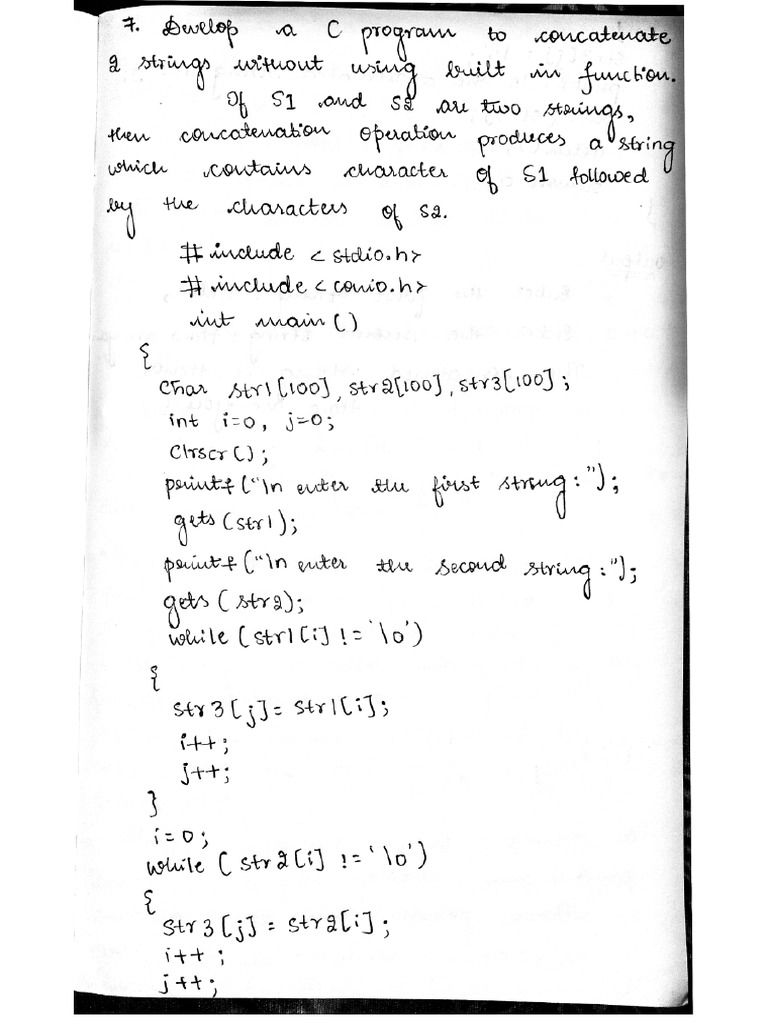 7. Develop a C program to concatenate
2 strings without using built in function.
If S1 and S2 are two strings,
then concatenation operation produces a string
which contains character of S1 followed
by the characters of S2.
# include < stdio.h>
# include < conio.h>
int main ()
{
Char str1[100], str2[100], str3[100];
int i=0, j=0;
Clrscr();
printf ("\n enter the first string: ");
gets (str1);
printf ("\n enter the second string: ");
gets (str2);
while (str1[i] != '\0')
{
str3[j]= str1[i];
i++;
j++;
}
i=0;
while ( str2[i] != '\0')
{
Str3[j] = str2[i];
i++ ;
j++;